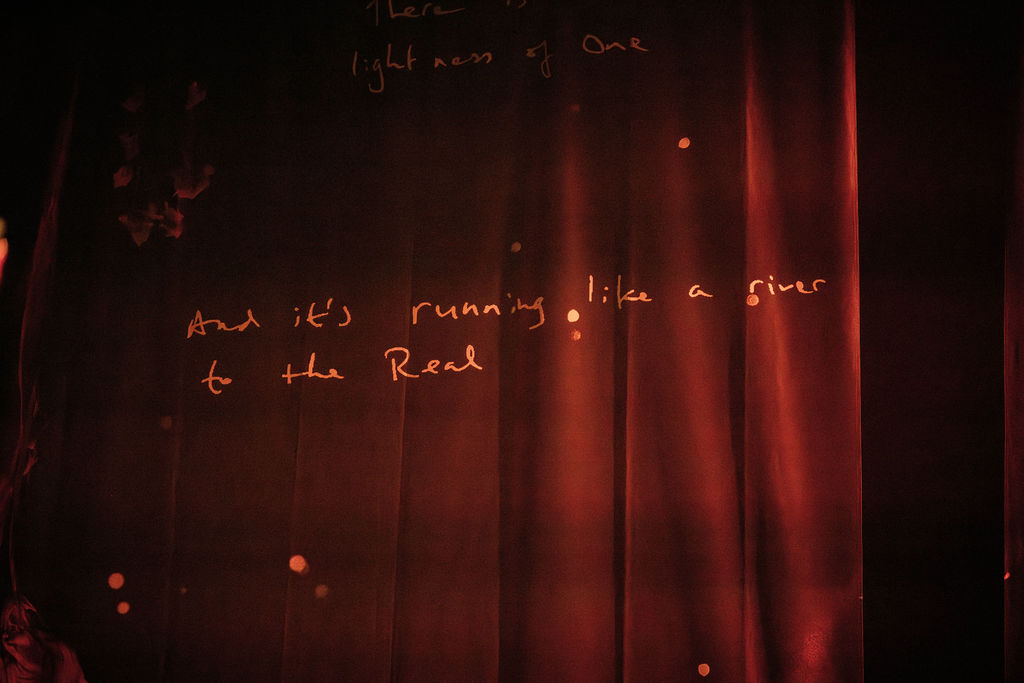 There is
lightness of One
And it's running like a river
to the Real